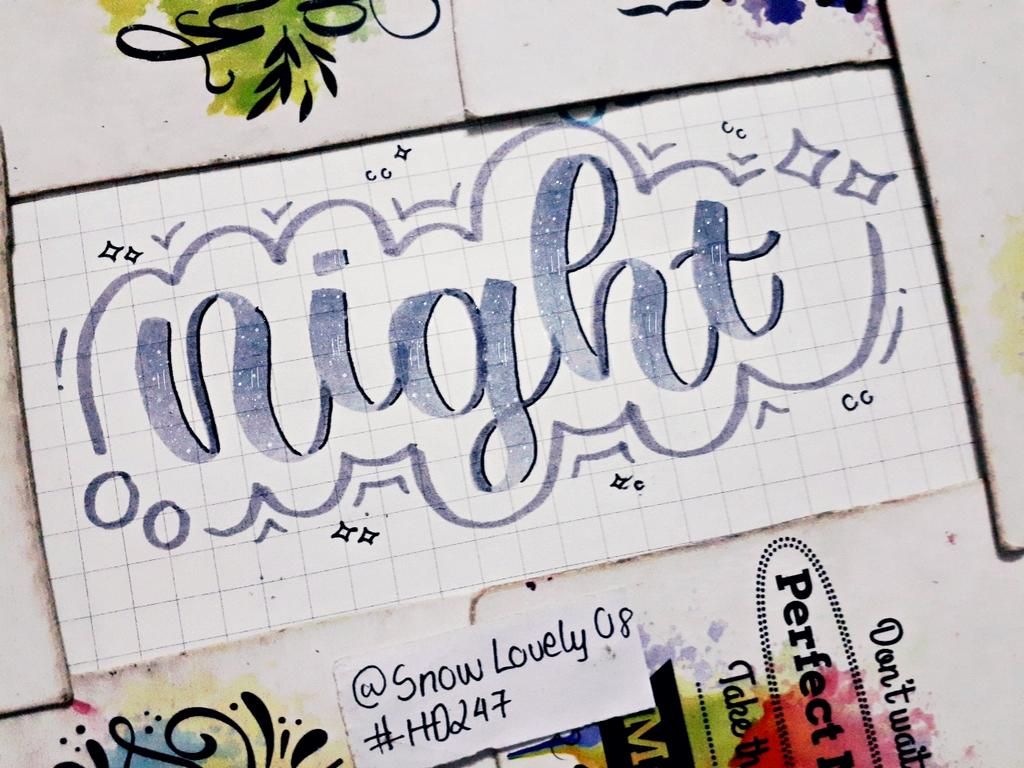 night
@Snow Lovely 08
#HD247
Perfect
Don't wait
Take th
M